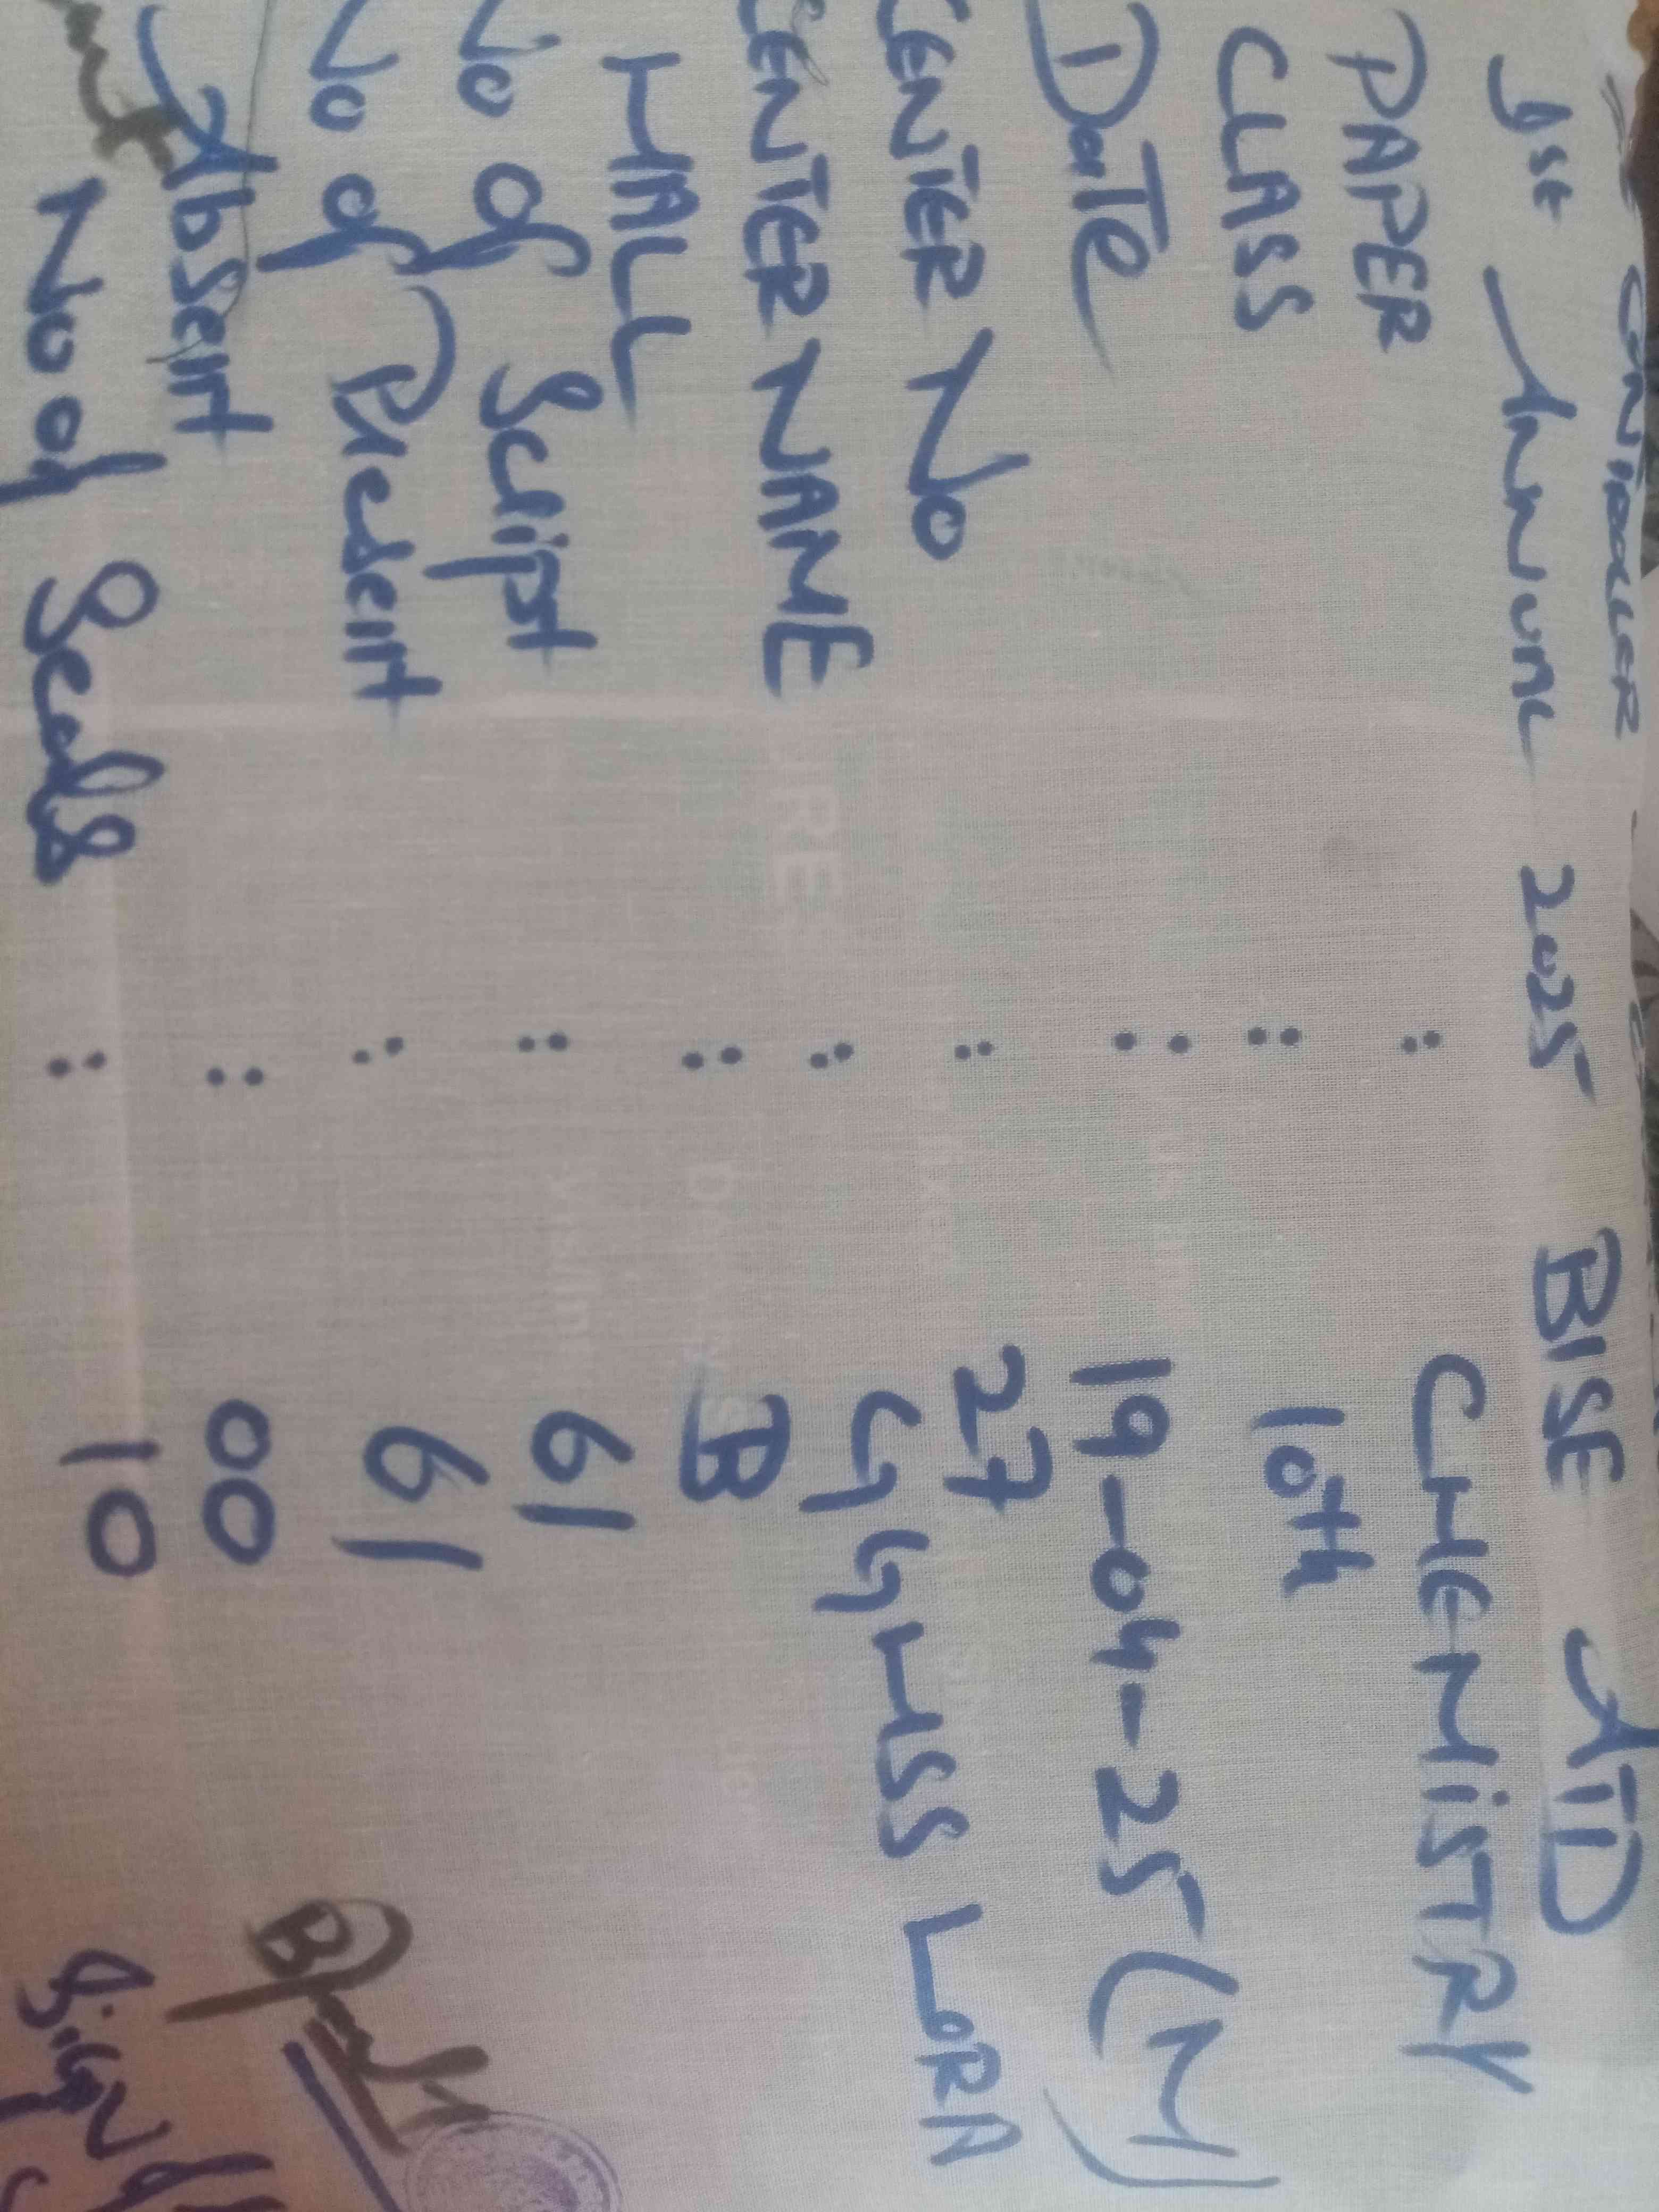 CONTROLLER
1st Annual 2025 BISE ATD
PAPER : CHEMISTRY
CLASS : 10th
DATE : 19-04-25 (M)
CENTER No : 27
CENTER NAME : GGHSS LORA
HALL : B
No of Script : 61
No of Present : 61
Absent : 00
No of Seals : 10
Sign